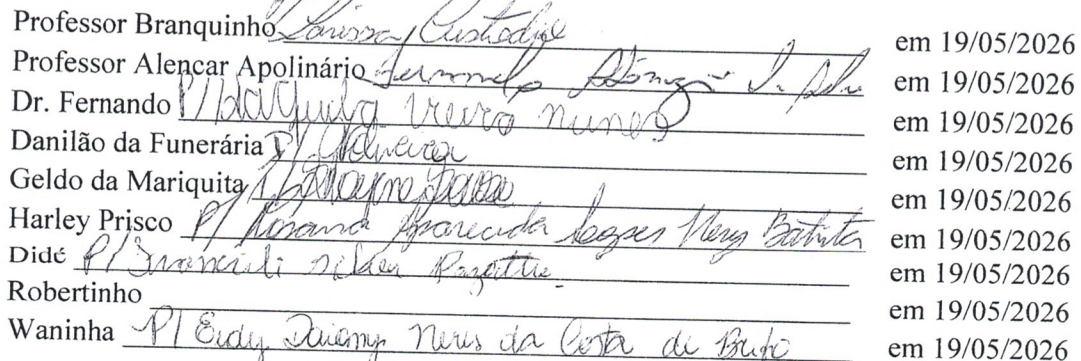 Professor Branquinho P/ Larissa Custodio em 19/05/2026
Professor Alencar Apolinário Fernando em 19/05/2026
Dr. Fernando P/ Vieira Nunes em 19/05/2026
Danilão da Funerária P/ Oliveira em 19/05/2026
Geldo da Mariquita P/ em 19/05/2026
Harley Prisco P/ Rosana Aparecida Lagares Nery Batista em 19/05/2026
Didé P/ Silva em 19/05/2026
Robertinho em 19/05/2026
Waninha P/ Daiany Neris da Costa de Brito em 19/05/2026